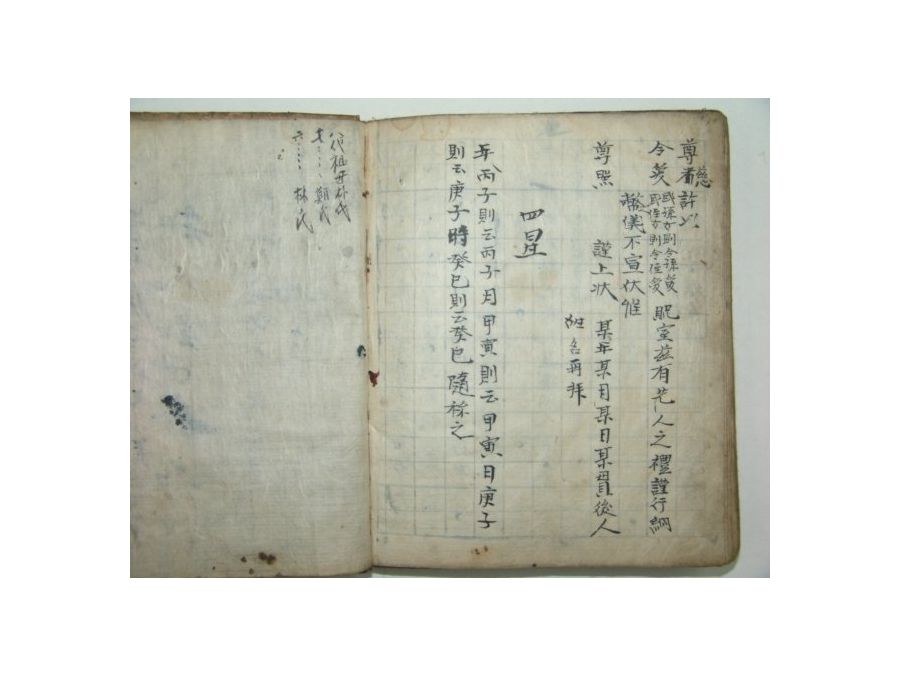 尊慈許以
令愛 或孫女則令孫愛 或侄女則令侄愛 貺室茲有先人之禮謹行納
幣儀不宣伏惟
尊照 謹上狀 某年某月某日某貫後人
姓名再拜
四星
年丙子則云丙子月甲寅則云甲寅日庚子
則云庚子時癸巳則云癸巳隨稱之
代祖母朴氏
七 鄭氏
六 林氏